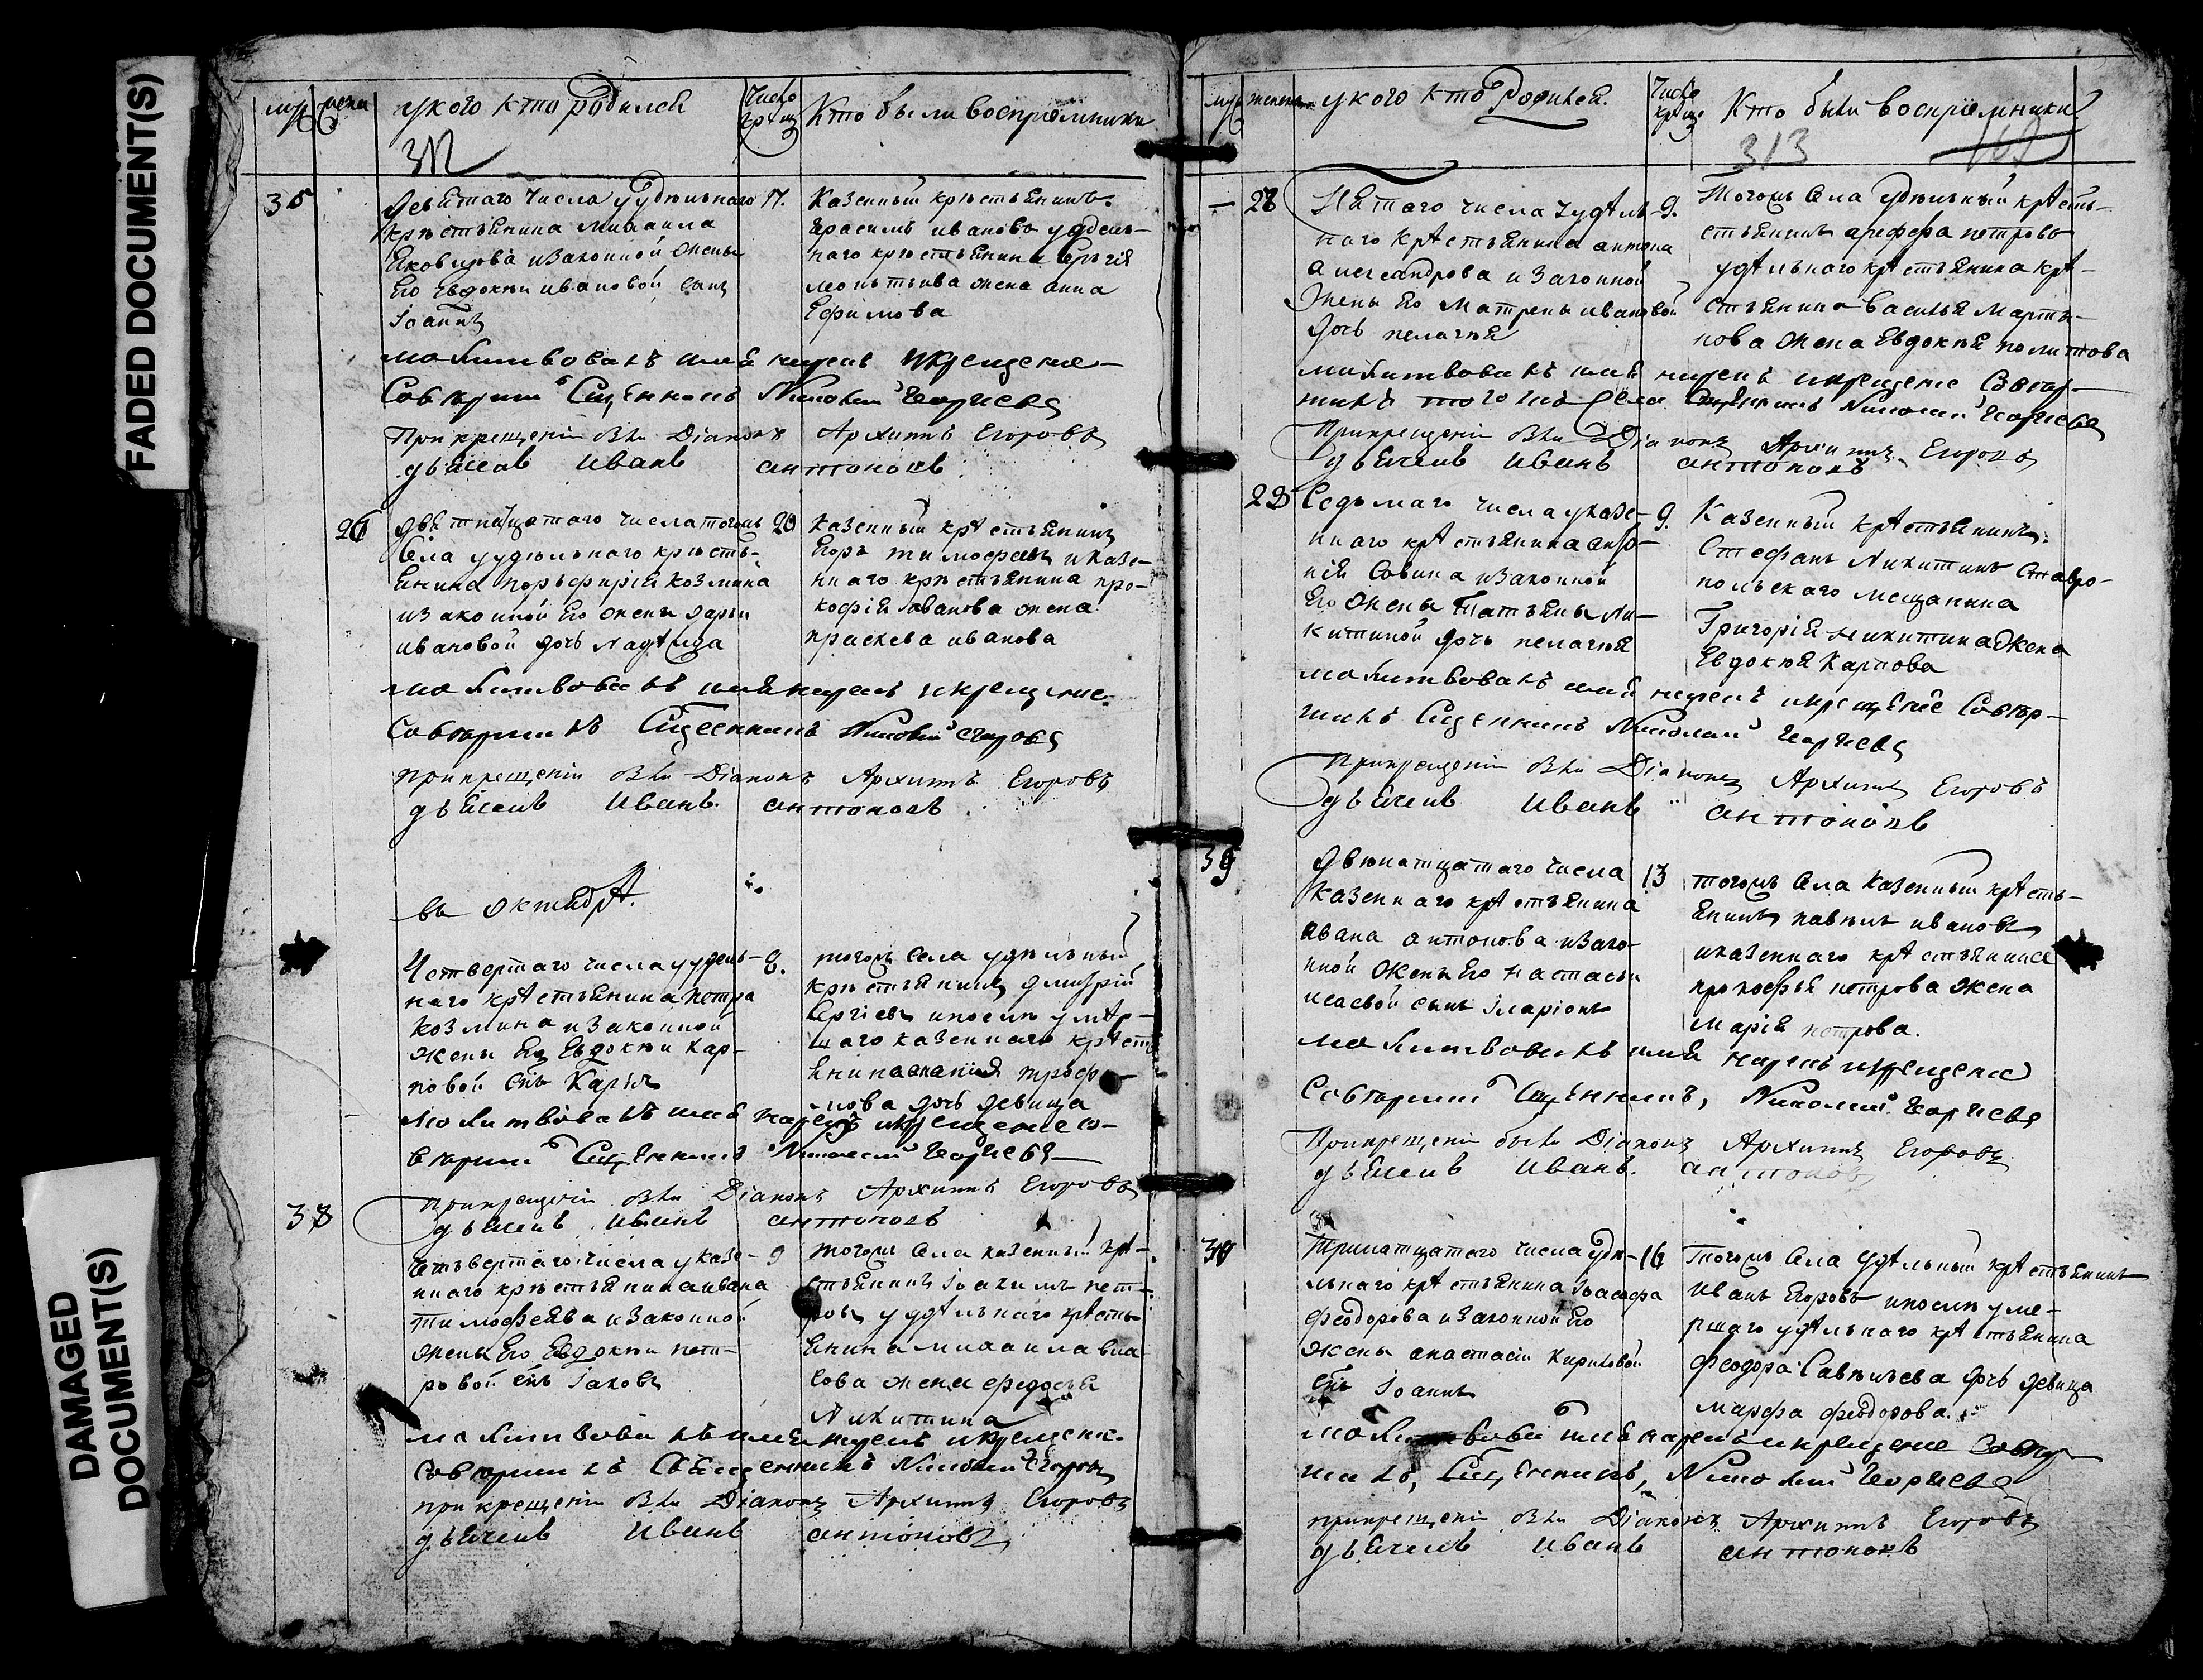 FADED DOCUMENT(S)
DAMAGED
DOCUMENT(S)
у кого кто родился
Число
крещ
Кто были восприемники
312
35
Девятаго числа у удельнаго
крестьянина Михаила
Яковлева и законной жены
его Евдокии Ивановой сынъ
Iоаннъ
Казенный крестьянинъ
Герасимъ Ивановъ удель-
наго крестьянина Сергея
жена Анна
Ефимова
молитвовалъ имя нарекъ и крещение
Совершилъ Сщенникъ Николай Георгиевъ
При крещенiи были Дiаконъ Архиппъ Егоровъ
дьячекъ Иванъ Антоновъ
26
числа тогожъ
села у удельнаго кресть-
янина Порьфирiя Козмина
и законной его жены Дарьи
Ивановой дочь Надежда
20
казенный крестьянинъ
Егоръ Тимофеевъ и казе-
ннаго крестьянина Про-
кофiя Иванова жена
Праскева Иванова
молитвовалъ имя нарекъ и крещение
Совершилъ Сщенникъ Николай
При крещенiи были Дiаконъ Архиппъ Егоровъ
дьячекъ Иванъ Антоновъ
въ октябре
Четвертаго числа у удель-
наго крестьянина Петра
Козмина и законной
жены его Евдокии Кар-
повой снъ Карпъ
8.
тогожъ села удельный
крестьянинъ Дмитрiй
Сергiевъ и
казеннаго крест
дочь девица
молитвовалъ имя нарекъ и крещение со-
вершилъ Сщенникъ Николай Георгиевъ
При крещенiи были Дiаконъ Архиппъ Егоровъ
дьячекъ Иванъ Антоновъ
38
Четвертаго числа у казе-
ннаго крестьянина Ивана
Тимофеева и законной
жены его Евдокии Пет-
ровой снъ Iаковъ
9
тогожъ села казенный кре-
стьянинъ Iоакимъ Пет-
ровъ удельнаго кресть
янина Михаила Вла
сова жена Федосья
Никитина
молитвовалъ имя нарекъ и крещение
Совершилъ Священникъ Николай
При крещенiи были Дiаконъ Архиппъ Егоровъ
дьячекъ Иванъ Антоновъ
у кого кто родился.
Число
крещ
Кто были восприемники
313
28
Пятаго числа у удель-
наго крестьянина Антона
Александрова и законной
жены его Матрены Ивановой
дочь Пелагия
9.
тогожъ села удельный кресть-
стьянинъ Арефа Петровъ
удельнаго крестьянина кре-
стьянина Василья Марты-
нова жена Евдокия
молитвовалъ имя нарекъ и крещение Совер-
шилъ того же села Сщенникъ Николай Георгиевъ
При крещенiи были Дiаконъ Архиппъ Егоровъ
дьячекъ Иванъ Антоновъ
29
Седьмаго числа у казе-
ннаго крестьянина
Савина и законной
его жены Татьяны Ни-
китиной дочь Пелагия
9.
Казенный крестьянинъ
Стефанъ Никитинъ Ставро-
польскаго мещанина
Григорiя Никитина жена
Евдокия Карпова
молитвовалъ имя нарекъ и крещение Совер-
шилъ Сщенникъ Николай Георгиевъ
При крещенiи были Дiаконъ Архиппъ Егоровъ
дьячекъ Иванъ Антоновъ
39
Двенатцатаго числа
казеннаго крестьянина
Ивана Антонова и зако-
нной жены его Настасьи
Исаевой сынъ Iларiонъ
13
тогожъ села казенный кресть-
янинъ Павелъ Ивановъ
и казеннаго крестьянина
Прокофья Петрова жена
Марiя Петрова.
молитвовалъ имя нарекъ и крещение
Совершилъ Сщенникъ, Николай Георгиевъ
При крещенiи были Дiаконъ Архиппъ Егоровъ
дьячекъ Иванъ Антоновъ
Тринатцатаго числа уде-
льнаго крестьянина Iоасафа
Феодорова и законной его
жены Анастасiи Кириловой
снъ Iоаннъ
16
тогожъ села удельный крестьянинъ
Иванъ Егоровъ и после уме-
ршаго удельнаго крестьянина
Феодора Савельева дочь девица
Марфа Феодорова.
молитвова имя нарекъ и крещение Совер
шилъ, Сщенникъ, Николай Георгиевъ
При крещенiи были Дiаконъ Архиппъ Егоровъ
дьячекъ Иванъ Антоновъ